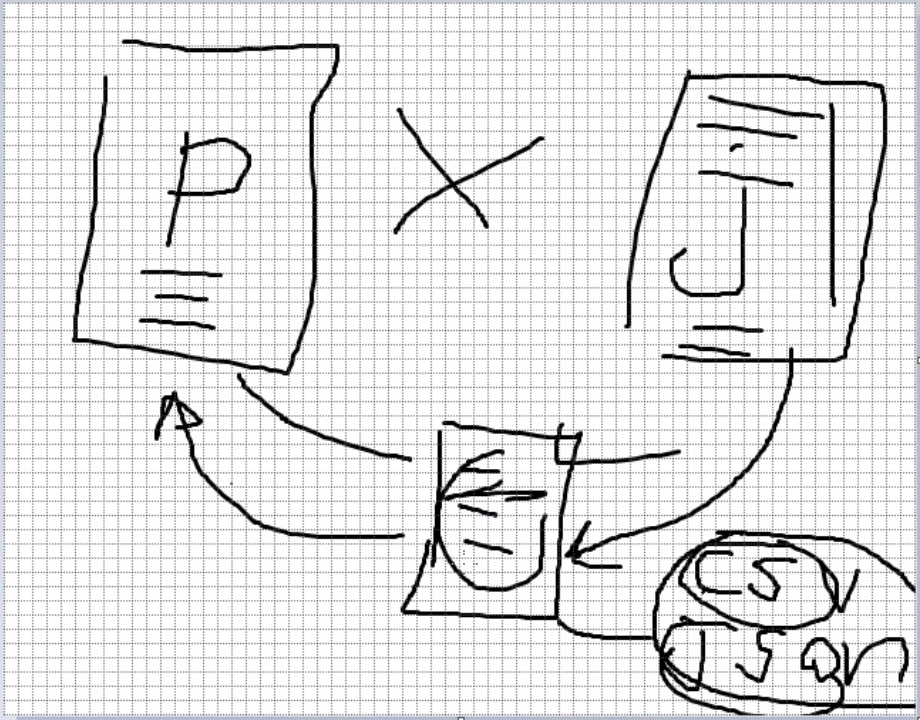 P
X
J
CSV
JSON